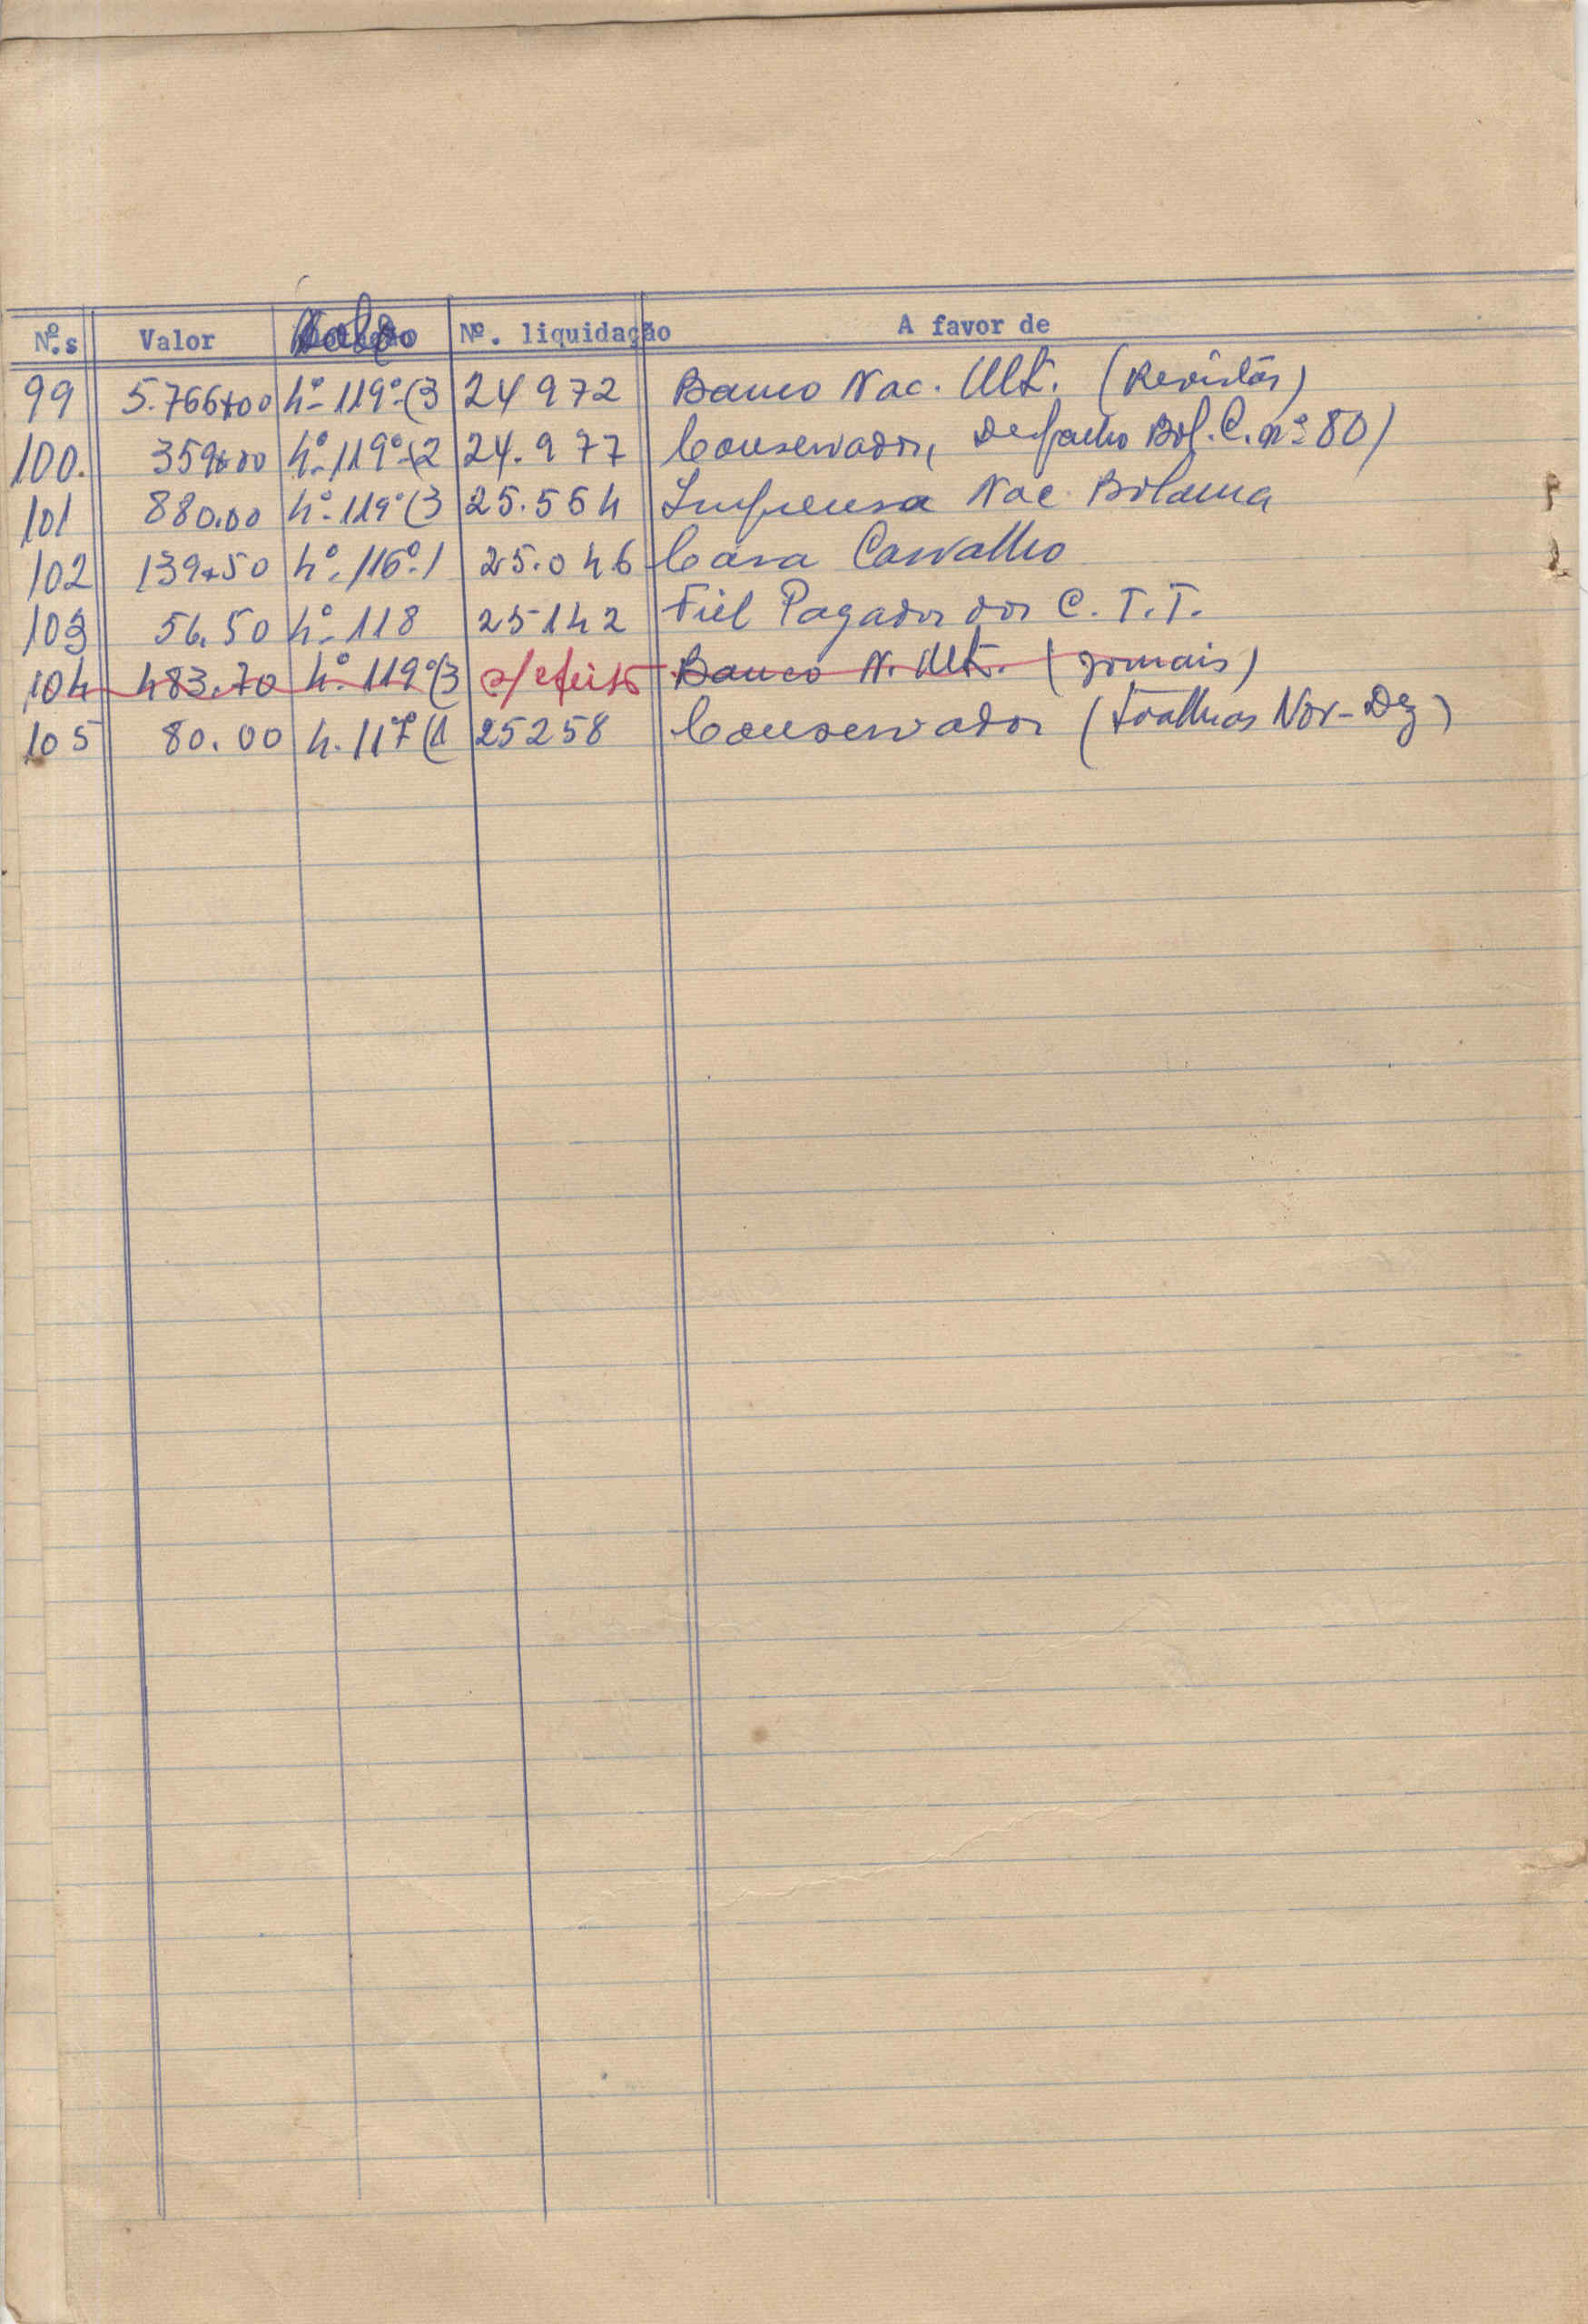 Nº.s Valor Nº. liquidação A favor de
99 5.766$00 4º-119º-(3 24972 Banco Nac. Ult. (Revistas)
100. 359$00 4º-119º-(2 24.977 Conservador, Despacho Bol. C. nº 80)
101 880.00 4º-119º(3 25.554 Imprensa Nac. Bolama
102 139$50 4º.116º.1 25.046 Casa Carvalho
103 56.50 4º-118 25142 Fiel Pagador dos C.T.T.
104 483.70 4º.119º(3 s/efeito Banco N. Ult. (jornais)
105 80.00 4.117º(1 25258 Conservador (toalhas Nov-Dez)